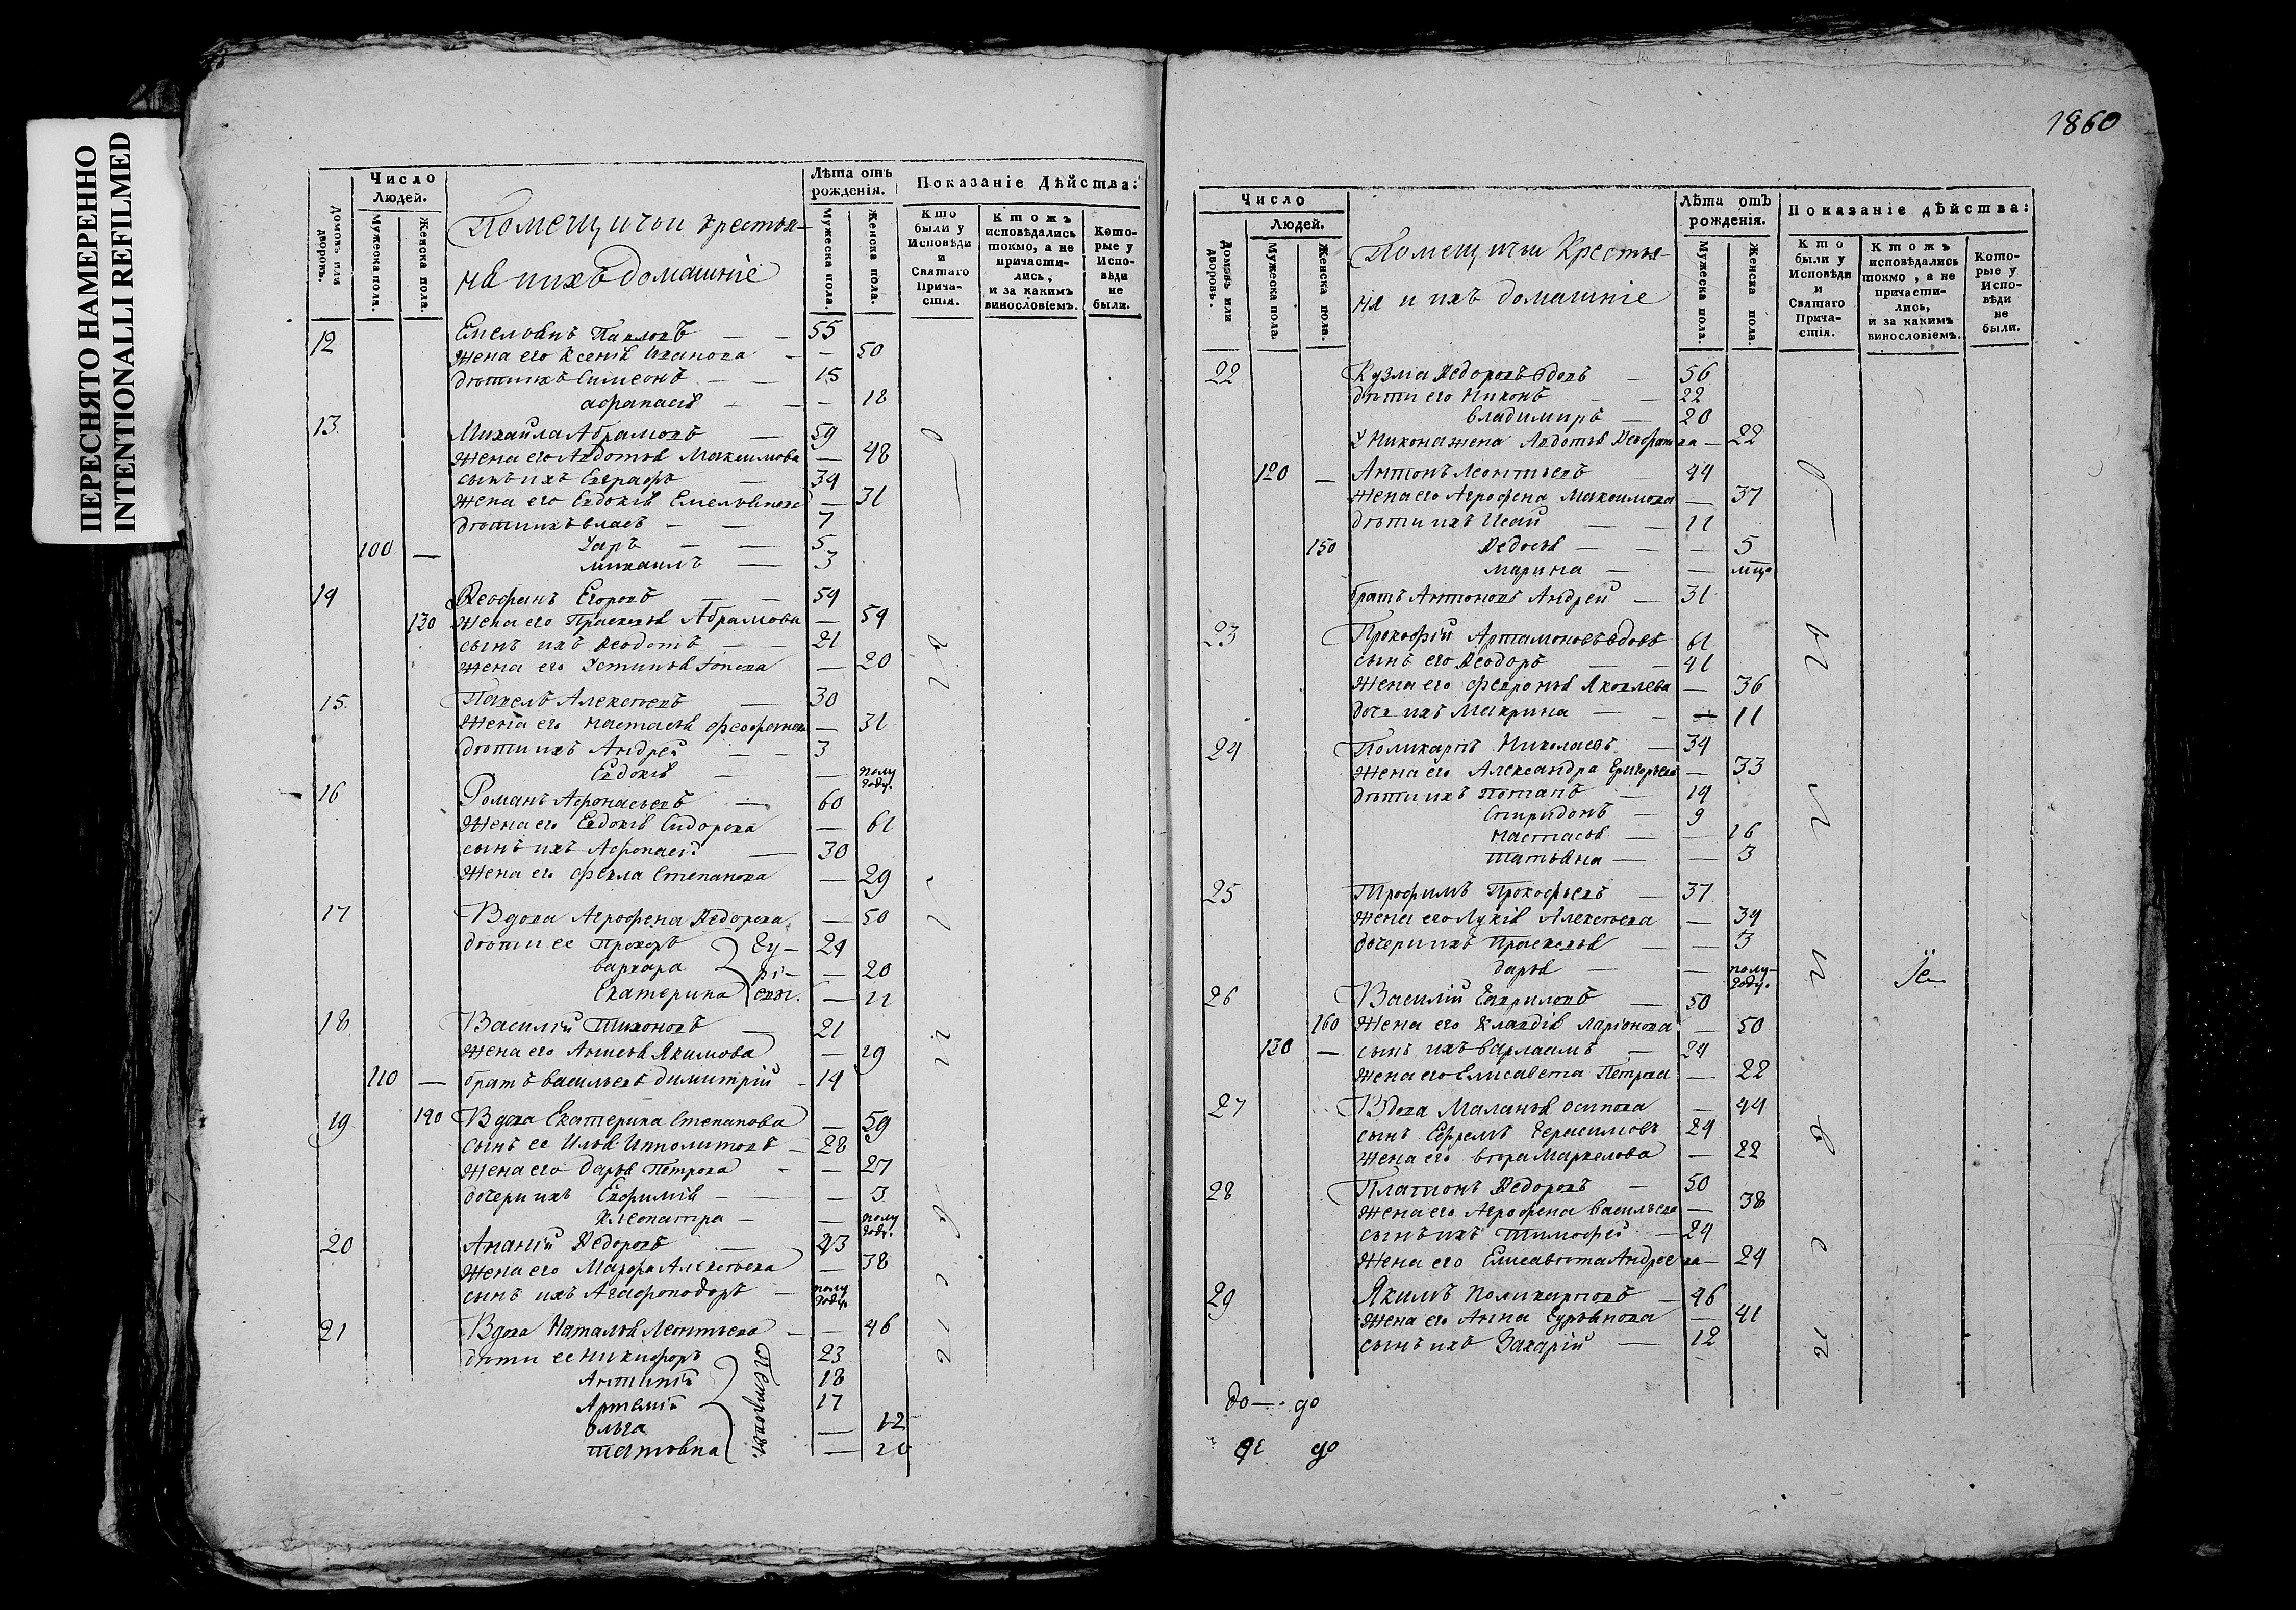 ПЕРЕСНЯТО НАМЕРЕННО
INTENTIONALLI REFILMED
Число Людей.
Домовъ или дворовъ.
Мужеска пола.
Женска пола.
Помещичьи крестья-
не и ихъ домашніе
Лѣта отъ рожденія.
Мужеска пола.
Женска пола.
Показаніе Дѣйства:
Кто были у Исповѣди и Святаго Прича-стія.
Ктожъ исповѣдались токмо, а не причасти-лись, и за какимъ винословіемъ.
Кото-рые у Испо-вѣди не были.
12 Емельянъ Павловъ — — 55
жена его Ксенія Иванова — — 50
дѣти ихъ Симеонъ — — 15
афанасія — — 18
13 Михайла Абрамовъ — 59
жена его Авдотья Максимова — 48
сынъ ихъ Евграфъ — 34
жена его Евдокія Емельянова — 31
дѣти ихъ Власъ — — 7
100 — Уаръ — — 5
михаилъ — 3
14 Ѳеофанъ Егоровъ — — 59
130 жена его Прасковья Абрамова — 54
сынъ ихъ Ѳеодотъ — — 21
жена его Устинья Іонова — 20
15 Павелъ Алексѣевъ — 30
жена его настасья феофанова — 31
дѣти ихъ Андрей — — 3
Евдокія — — полу году.
16 Романъ Афонасьевъ — 60
жена его Евдокія Сидорова — 61
сынъ ихъ Афонасей — 30
жена его фекла Степанова — 29
17 Вдова Агрофена Ѳедорова — 50
дѣти ее Прохоръ 24
варвара — 20
Екатерина — 11
18 Василій Тихоновъ — 21
жена его Анисья Якимова — 19
110 — братъ васильевъ димитрій - 14
19 140 Вдова Екатерина Степанова — 59
сынъ ее Илья Ипполитовъ — 28
жена его Дарья Петрова - — 27
дочери ихъ Евфимія — — — 3
Клеопатра — — полу году.
20 Ананій Ѳедоровъ — 43
жена его Марфа Алексѣева — 38
сынъ ихъ Агафоподоръ — полу году
21 Вдова Наталья Леонтьева — — 46
дѣти ее никифоръ 23
Антипій 18
Артемій 17
ольга — 12
татьяна — 10
Петровы.
1860
Число Людей.
Домовъ или дворовъ.
Мужеска пола.
Женска пола.
Помещичьи Крестья-
не и ихъ домашніе
Лѣта отъ рожденія.
Мужеска пола.
Женска пола.
Показаніе дѣйства:
Кто были у Исповѣди и Святаго Прича-стія.
Ктожъ исповѣдались токмо, а не причасти-лись, и за какимъ винословіемъ.
Кото-рые у Испо-вѣди не были.
22 Кузма Ѳедоровъ вдовъ — 56
дѣти его Никонъ — — 22
владимиръ — 20
У Никона жена Авдотья — 22
120 — Антонъ Леонтьевъ 44
жена его Агрофена Максимова — 37
дѣти ихъ Исай — — 11
150 Ѳедосья — — — 5
марина — —
братъ Антоновъ Андрей — 31
23 Прокофій Артамоновъ вдовъ 61
сынъ его Ѳеодоръ — — 41
жена его февронья Яковлева — 36
дочь ихъ Макрина — — — 11
24 Поликарпъ Николаевъ — 34
жена его Александра Григорьева — 33
дѣти ихъ потапъ — 14
Спиридонъ — 9
настасья — — 16
татьяна — — 3
25 Трофимъ Прокофьевъ — 37
жена его Лукія Алексѣева — 34
дочери ихъ Прасковья — — 3
дарья — — полу-году.
26 Василій Гавриловъ — 50
160 жена его Клавдія ларіонова — 50
130 — сынъ ихъ Варлаамъ — 24
жена его Елисавета Петрова — 22
27 Вдова Маланья осипова — 44
сынъ Ефремъ Герасимовъ 24
жена его вѣра Маркелова — 22
28 Платонъ Ѳедоровъ — 50
жена его Агрофена васильева — 38
сынъ ихъ Тимофей — 24
жена его Елисавѣта Андреева — 24
29 Якимъ Поликарповъ — 46
жена его Анна Гурьянова — 41
сынъ ихъ Захарій — 12